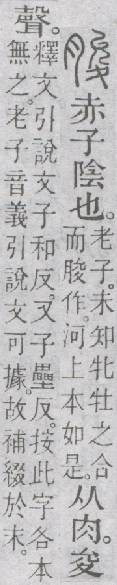 朘赤子陰也。老子。未知牝牡之合
而朘作。河上本如是。从肉。夋
聲。釋文引說文子和反。又子壘反。按此字各本
無之。老子音義引說文可據。故補綴於末。